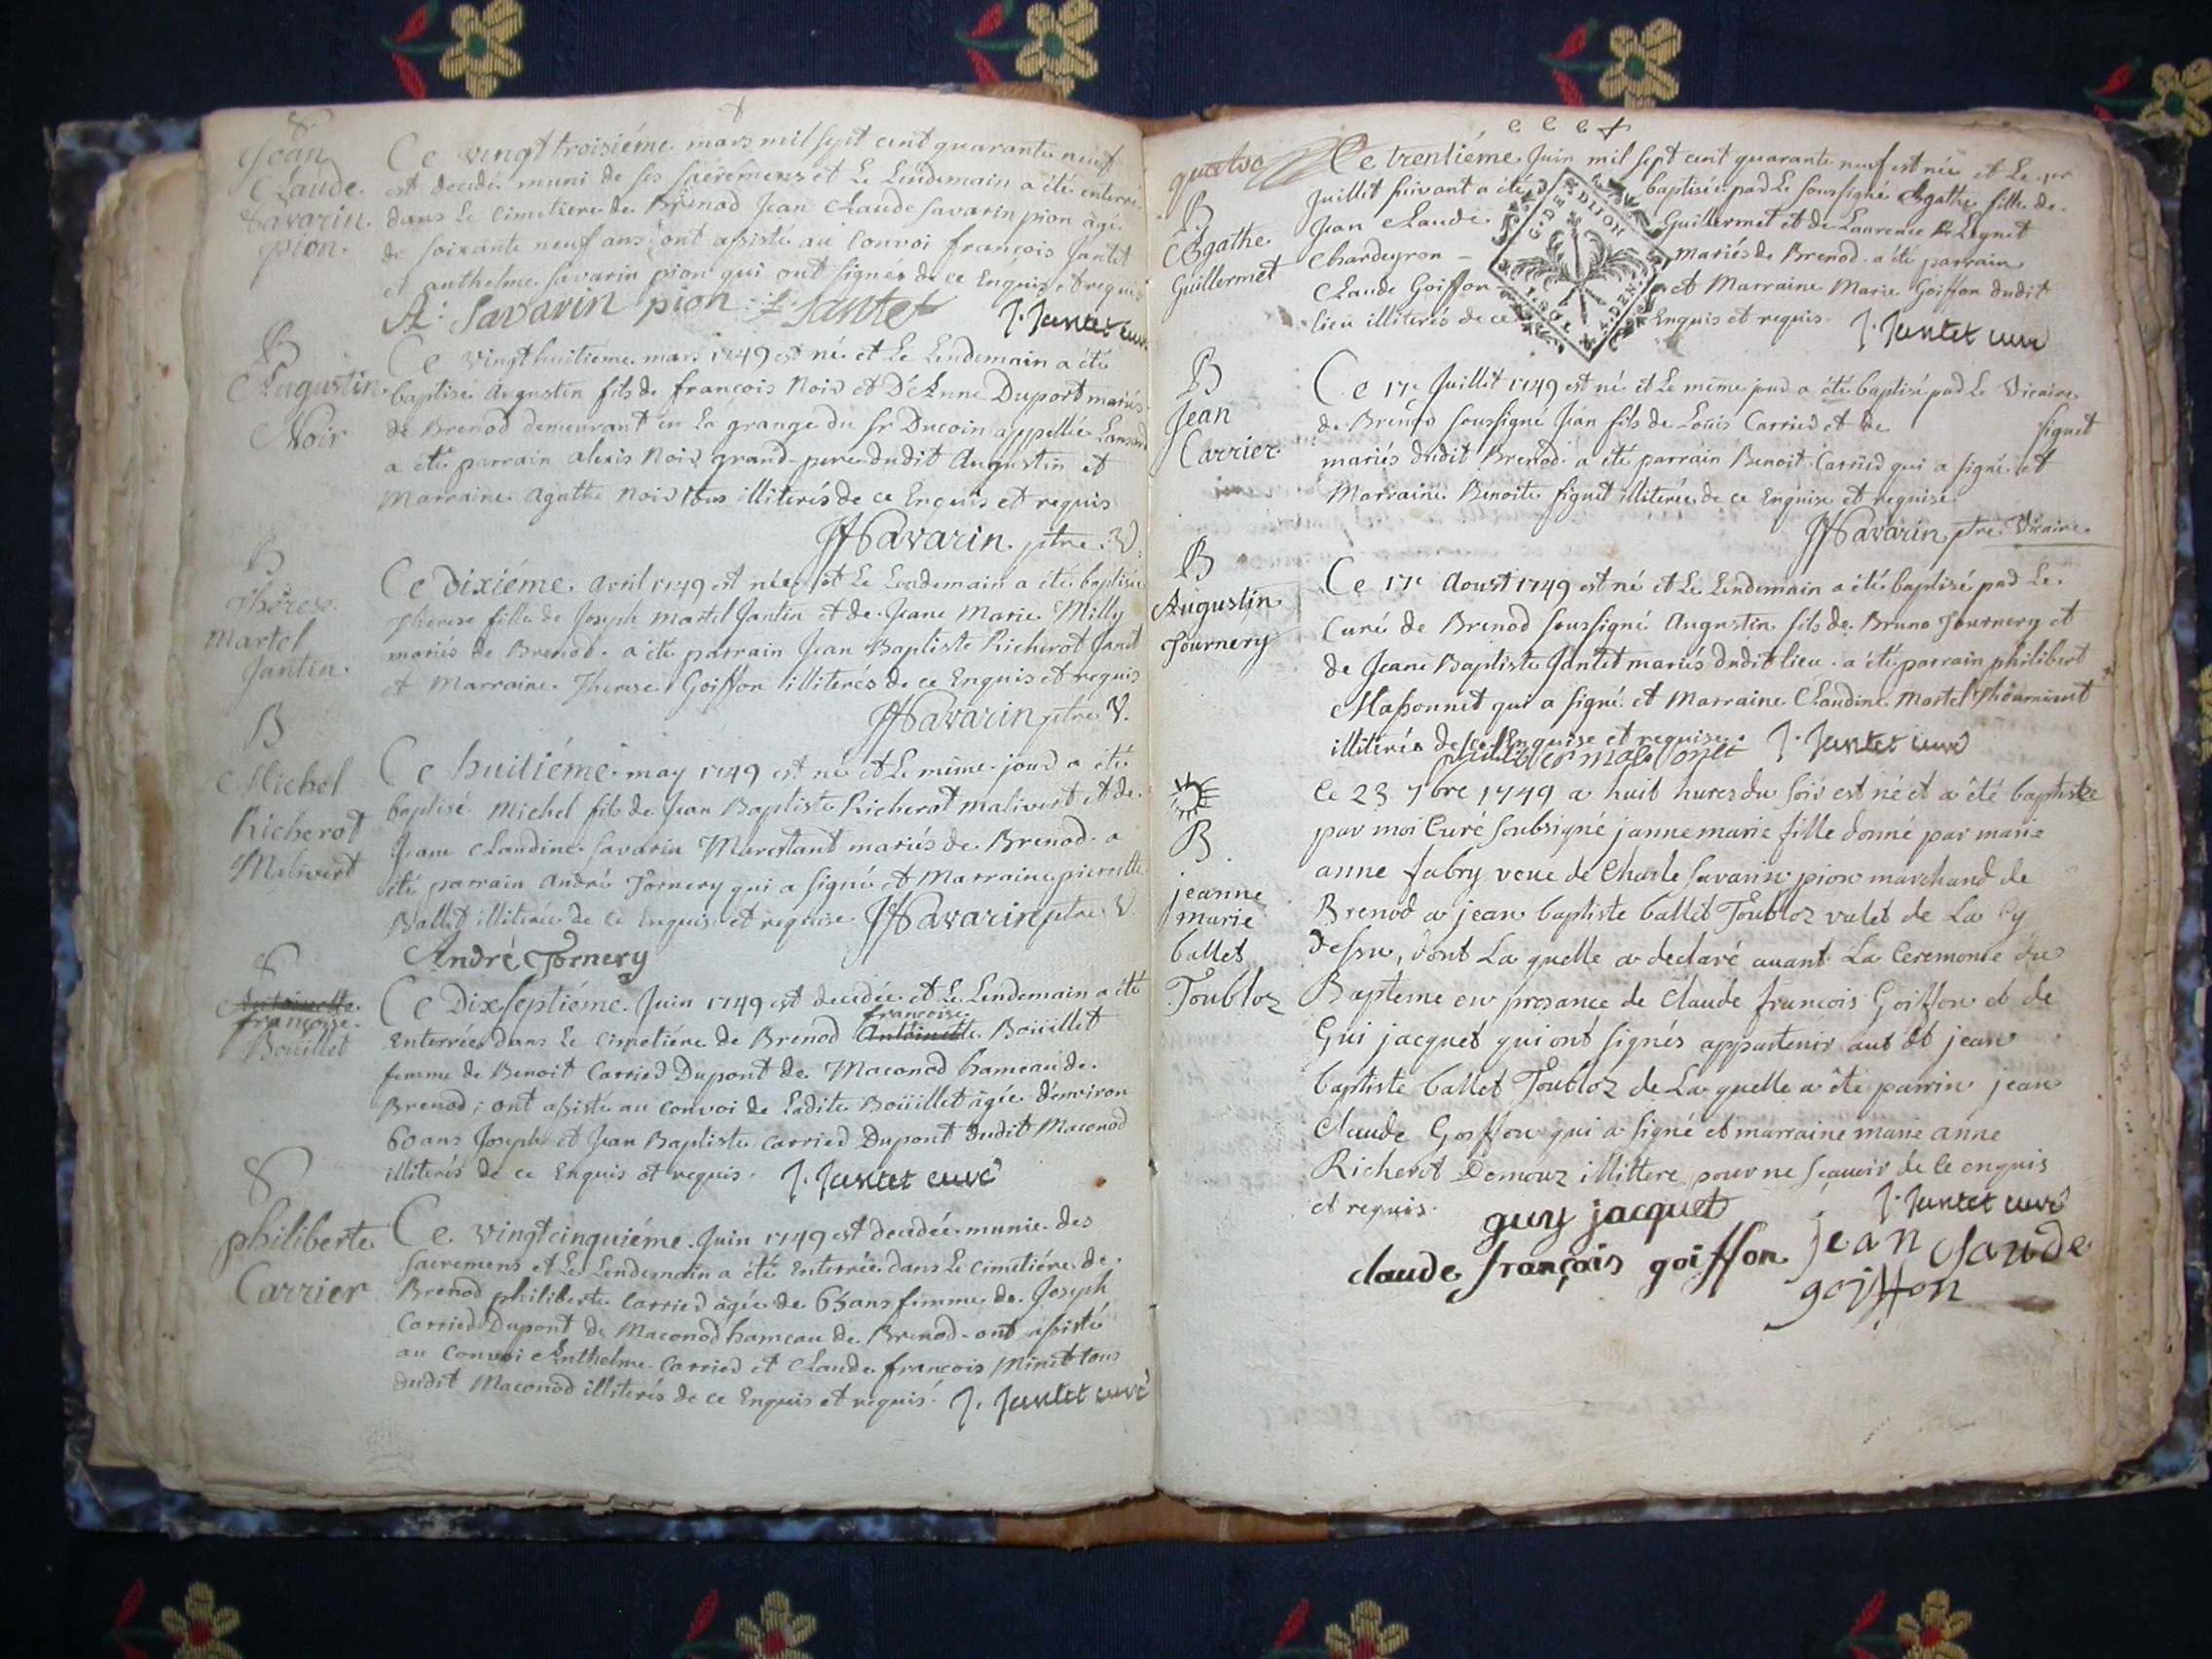 S
Jean
Claude
Savarin
pion.
Ce vingt troisiéme mars mil sept cent quarante neuf
est decedé muni de ses sacremens et Le Lendemain a été enterré
dans Le Cimetiere de Brenod Jean Claude Savarin pion agé
de soixante neuf ans; ont assisté au Convoi françois Jantet
et anthelme Savarin pion qui ont signés de ce Enquis et requis
A: Savarin pion f Jantet J. Jantet curé
B
Augustin
Noir
Ce vingt huitiéme mars 1749 est né et Le Lendemain a été
baptisé Augustin fils de françois Noir et D'Anne Duport mariés
de Brenod demeurant en La grange du Sr Ducoin appellée
a été parrain alexis Noir grand-pere dudit Augustin et
Marraine Agathe Noir tous illiterés de ce Enquis et requis
Savarin ptre. V.
B
Thérese
Martel
Jantin.
Ce Dixiéme Avril 1749 est née et Le Lendemain a été baptisée
Therese fille de Joseph Martel Jantin et de Jeane Marie Milly
mariés de Brenod. a été parrain Jean Baptiste Richerot Janet
et Marraine Therese Goiffon illiterés de ce Enquis et requis
Savarin ptre V.
B
Michel
Richerot
Malivert
Ce huitiéme may 1749 est né et Le même jour a été
baptisé Michel fils de Jean Baptiste Richerot malivert et de
Jeane Claudine Savarin Marchant mariés de Brenod a
été parrain André Tornery qui a signé et Marraine pierrette
Ballet illiterée de ce Enquise et requise Savarin ptre V.
André Tornery
S
Antoinette
françoise
Boüillet
Ce Dixseptiéme Juin 1749 est decedée et Le Lendemain a été
françoise
Enterrée dans Le Cimetiére de Brenod Antoinette Boüillet
femme de Benoit Carrier Dupont de Maconod hameau de
Brenod; ont assisté au Convoi de Ladite Boüillet agée d'environ
60 ans Joseph et Jean Baptiste Carrier Dupont dudit Maconod
illiterés de ce Enquis et requis. J. Jantet curé
S
philiberte
Carrier
Ce vingtcinquiéme Juin 1749 est decedée munie des
sacremens et Le Lendemain a été Enterrée dans Le Cimetiére de
Brenod philiberte Carrier agée de 65 ans femme de Joseph
Carrier Dupont de Maconod hameau de Brenod. ont assisté
au Convoi Anthelme Carrier et Claude françois Minet tous
dudit Maconod illiterés de ce Enquis et requis. J. Jantet curé
quatre
B
Agathe
Guillermet
Ce trentiéme Juin mil sept cent quarante neuf est née et Le 1er
Juillet suivant a été baptisée par Le soussigné Agathe fille de
Jean Claude Guillermet et de Laurence
Chardeyron mariés de Brenod a été parrain
Claude Goiffon et Marraine Marie Goiffon dudit
lieu illiterés de ce Enquis et requis. J. Jantet curé
G. DE DIJON
B
Jean
Carrier
Ce 17e Juillet 1749 est né et Le même jour a été baptisé par Le Vicaire
de Brenod soussigné Jean fils de Loüis Carrier et de Signet
mariés dudit Brenod. a été parrain Benoit Carrier qui a signé et
Marraine Benoite Signet illiterée de ce Enquise et requise.
Savarin ptre Vicaire
B
Augustin
Tournery
Ce 17e Aoust 1749 est né et Le Lendemain a été baptisé par Le
Curé de Brenod soussigné Augustin fils de Bruno Tournery et
de Jeane Baptiste Jantet mariés dudit lieu. a été parrain philibert
Massonnet qui a signé et Marraine Claudine Martel
illiterée de ce Enquise et requise. J. Jantet curé
philibert massonet
B
jeanne
marie
ballet
Toubloz
Le 23 7bre 1749 a huit hures du soir est né et a été baptisée
par moi Curé soubsigné janne marie fille donné par marie
anne fabry veue de Charle Savarin pion marchand de
Brenod a jean baptiste ballet Toubloz valet de La cy
dessu, dont La quelle a declaré auant La Ceremonie du
Bapteme en prosance de Claude francois Goiffon et de
Gui jacquet qui ont signés appartenir aut dt jean
baptiste ballet Toubloz de La quelle a été parrin jean
Claude Goiffon qui a signé et marraine marie anne
Richerot Domouz illittere pour ne sçauoir de Ce enquis
et requis. J. Jantet curé
guy jacquet
claude françois goiffon jean claude
goiffon